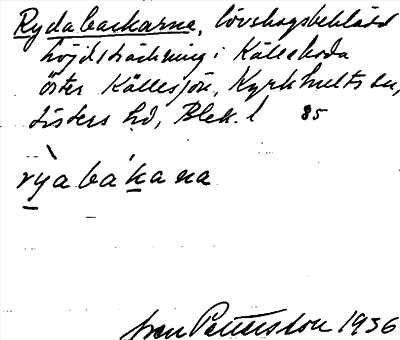 Rydabackarna, lövskogsbeklädd
höjdsträckning i Källeboda
öster Källesjön, Kyrkhults sn,
Listers hd, Blek. l 85
rỳabákana
Sven Pettersson 1936